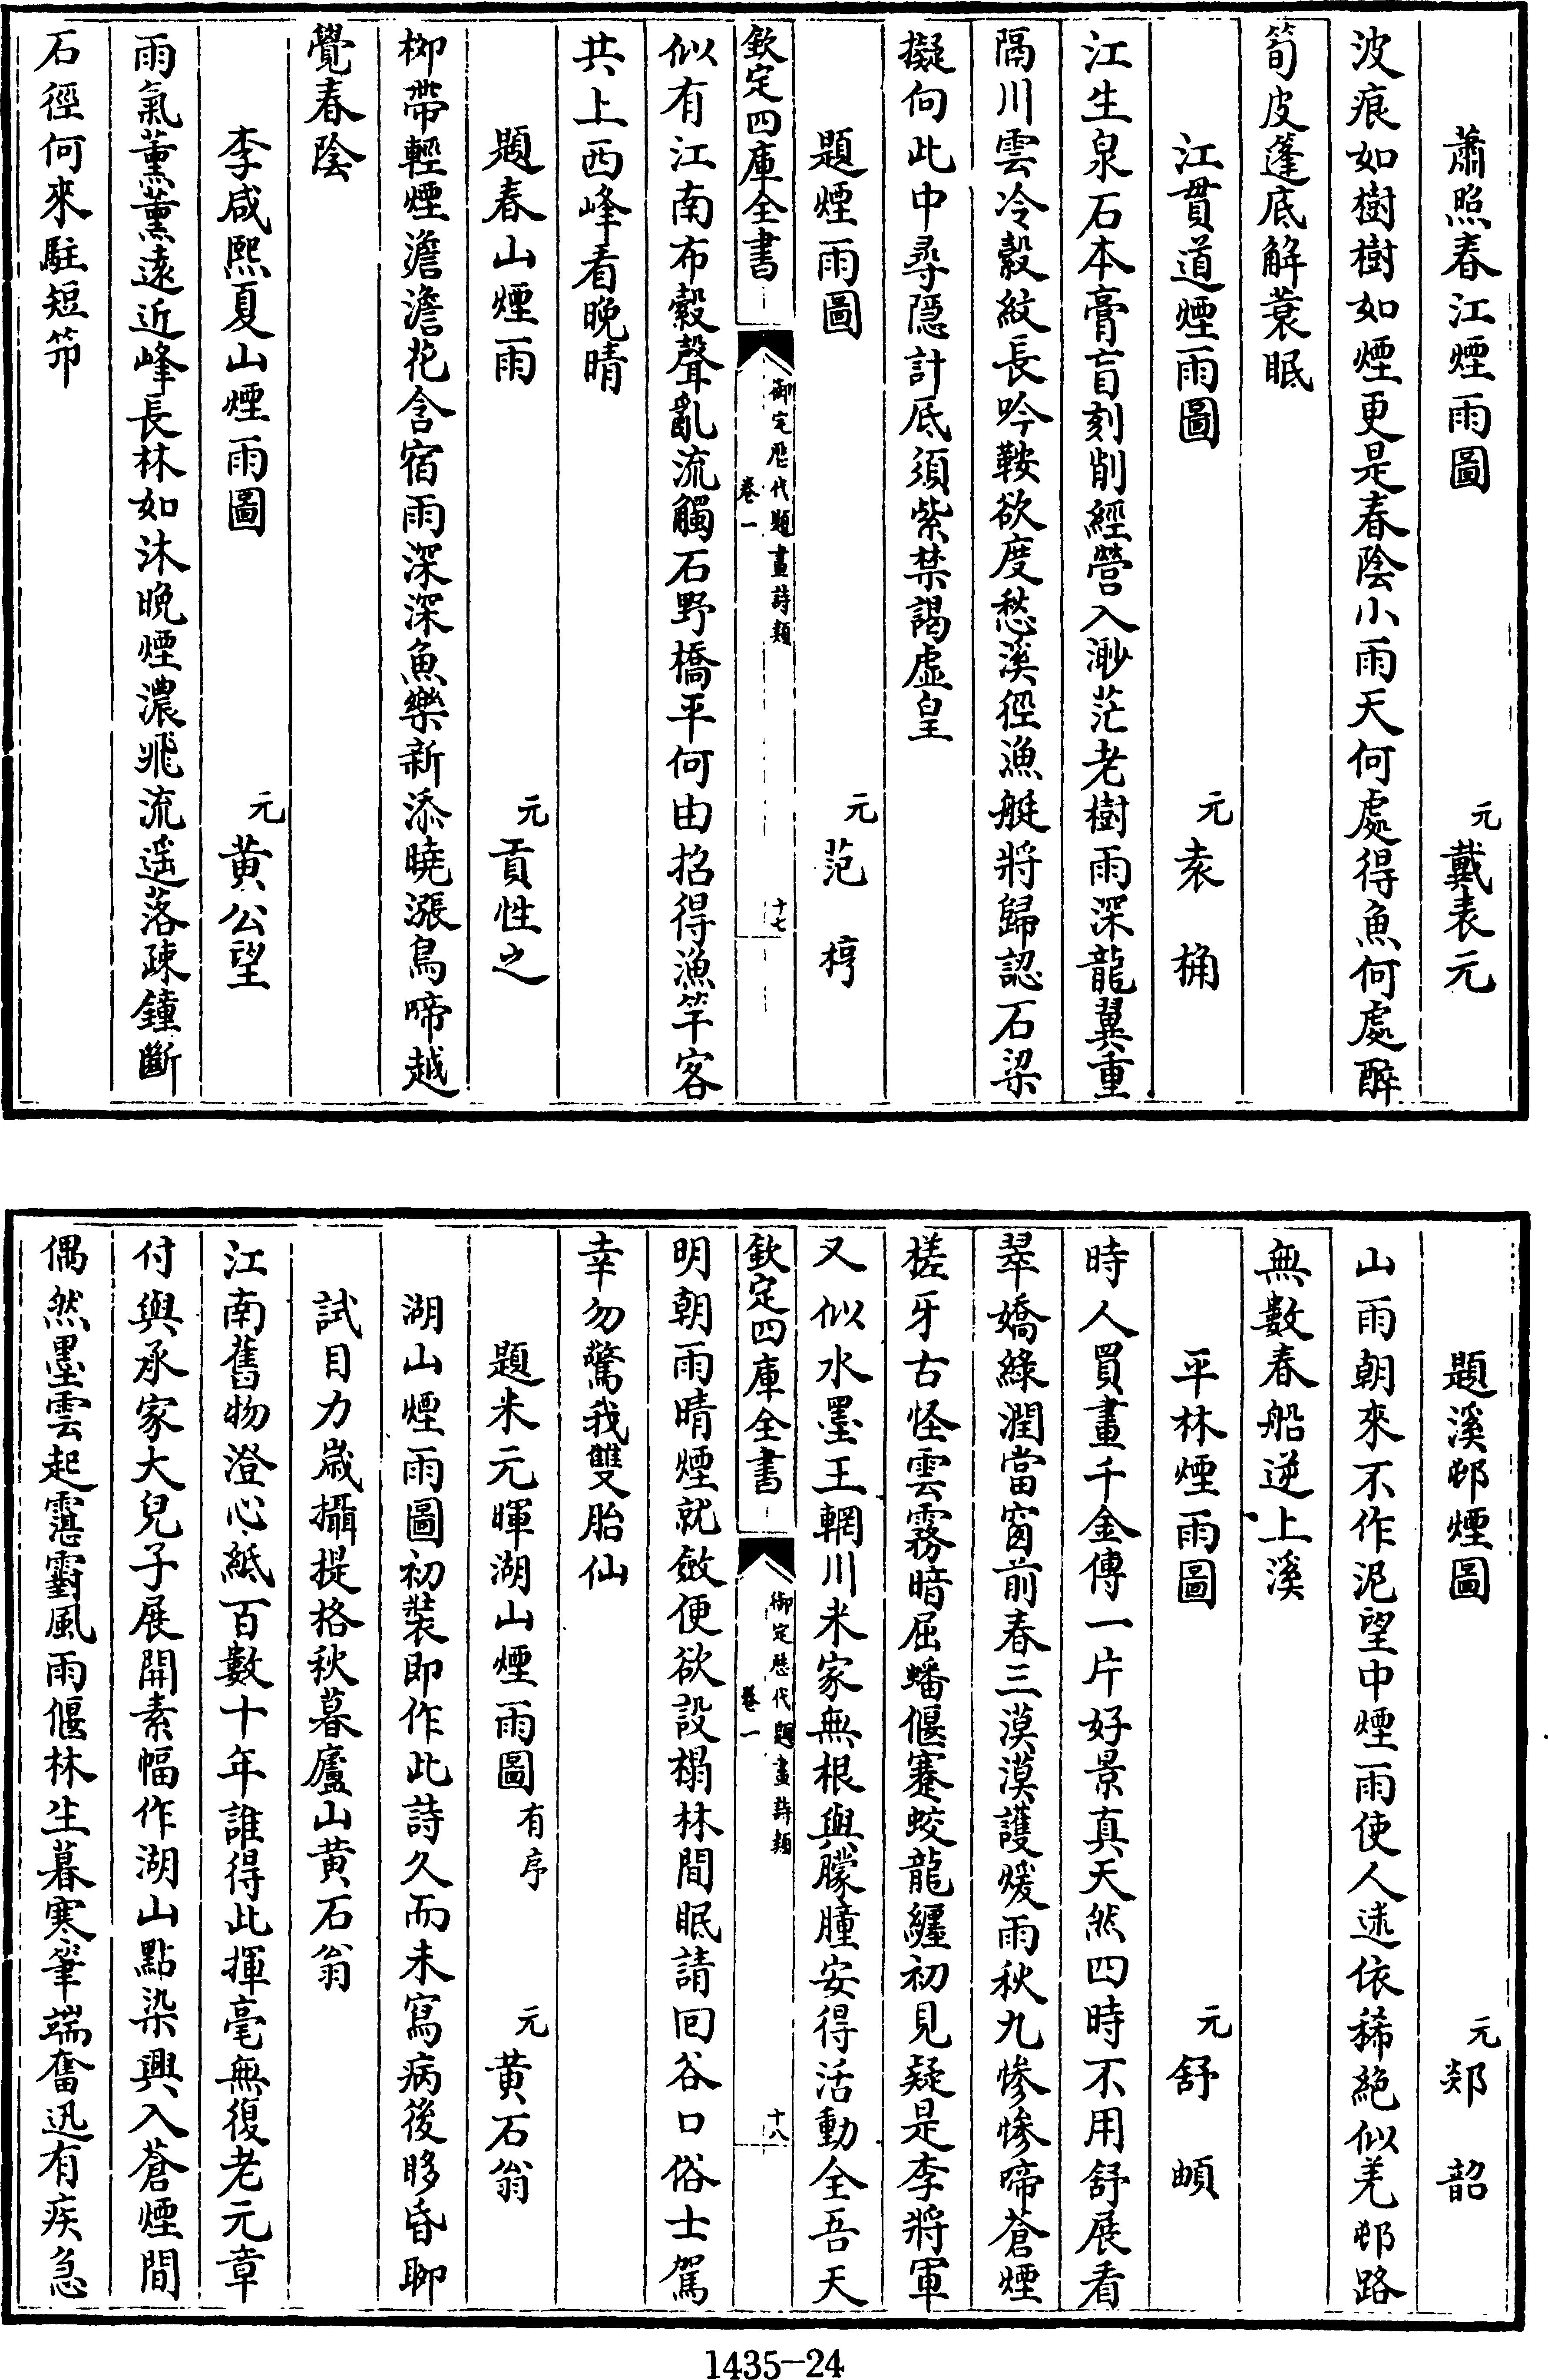 蕭照春江煙雨圖　元戴表元
波痕如樹樹如煙更是春陰小雨天何處得魚何處醉
筍皮蓬底解蓑眠
江貫道煙雨圖　元袁桷
江生泉石本膏肓刻削經營入渺茫老樹雨深龍翼重
隔川雲冷縠紋長吟鞍欲度愁溪徑漁艇將歸認石梁
擬向此中尋隱計底須紫禁謁虛皇
題煙雨圖　元范梈
欽定四庫全書　御定歷代題畫詩類　卷一　十七
似有江南布穀聲亂流觸石野橋平何由招得漁竿客
共上西峰看晚晴
題春山煙雨　元貢性之
栁帶輕煙澹澹花含宿雨深深魚樂新添曉漲鳥啼越
覺春陰
李咸熙夏山煙雨圖　元黃公望
雨氣薰薰遠近峰長林如沐晚煙濃飛流遥落疎鐘斷
石徑何來駐短笻
題溪邨煙圖　元郯韶
山雨朝來不作泥望中煙雨使人迷依稀絶似羌邨路
無數春船逆上溪
平林煙雨圖　元舒頔
時人買畫千金傳一片好景真天然四時不用舒展看
翠嬌綠潤當窗前春三漠漠護煖雨秋九慘慘啼蒼煙
槎牙古怪雲霧暗屈蟠偃蹇蛟龍纏初見疑是李將軍
又似水墨王輞川米家無根與朦朣安得活動全吾天
欽定四庫全書　御定歷代題畫詩類　卷一　十八
明朝雨晴煙就斂便欲設榻林間眠請囘谷口俗士駕
幸勿驚我雙胎仙
題米元暉湖山煙雨圖有序　元黃石翁
湖山煙雨圖初裝即作此詩久而未寫病後眵昏聊
試目力嵗攝提格秋暮廬山黃石翁
江南舊物澄心紙百數十年誰得此揮毫無復老元章
付與承家大兒子展開素幅作湖山點染興入蒼煙間
偶然墨雲起霮䨴風雨偃林生暮寒筆端奮迅有疾急
1435-24